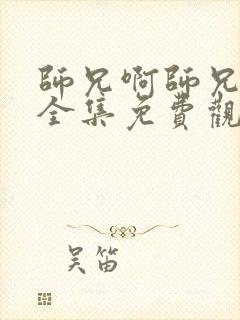 師兄啊師兄
全集免費觀
吴笛